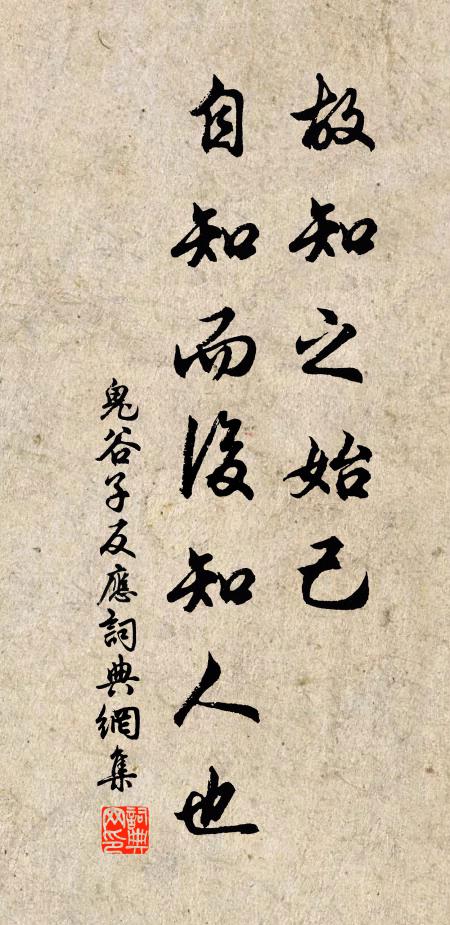 故知之始己
自知而後知人也
鬼谷子反應詞典網集
詞典
网印